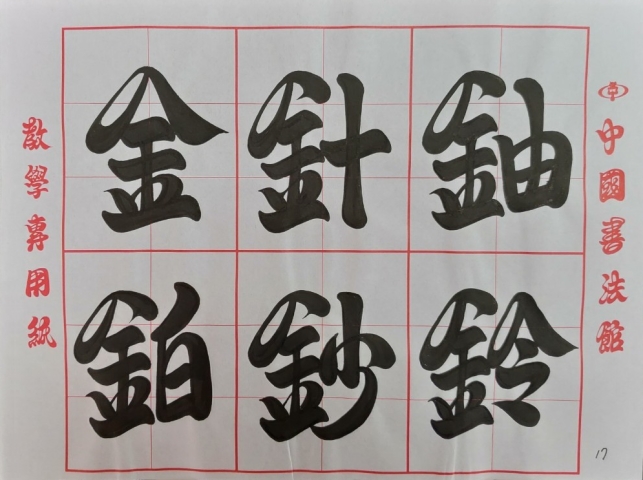 金針鈾
鉑鈔鈴
中國書法館
教學專用紙
17